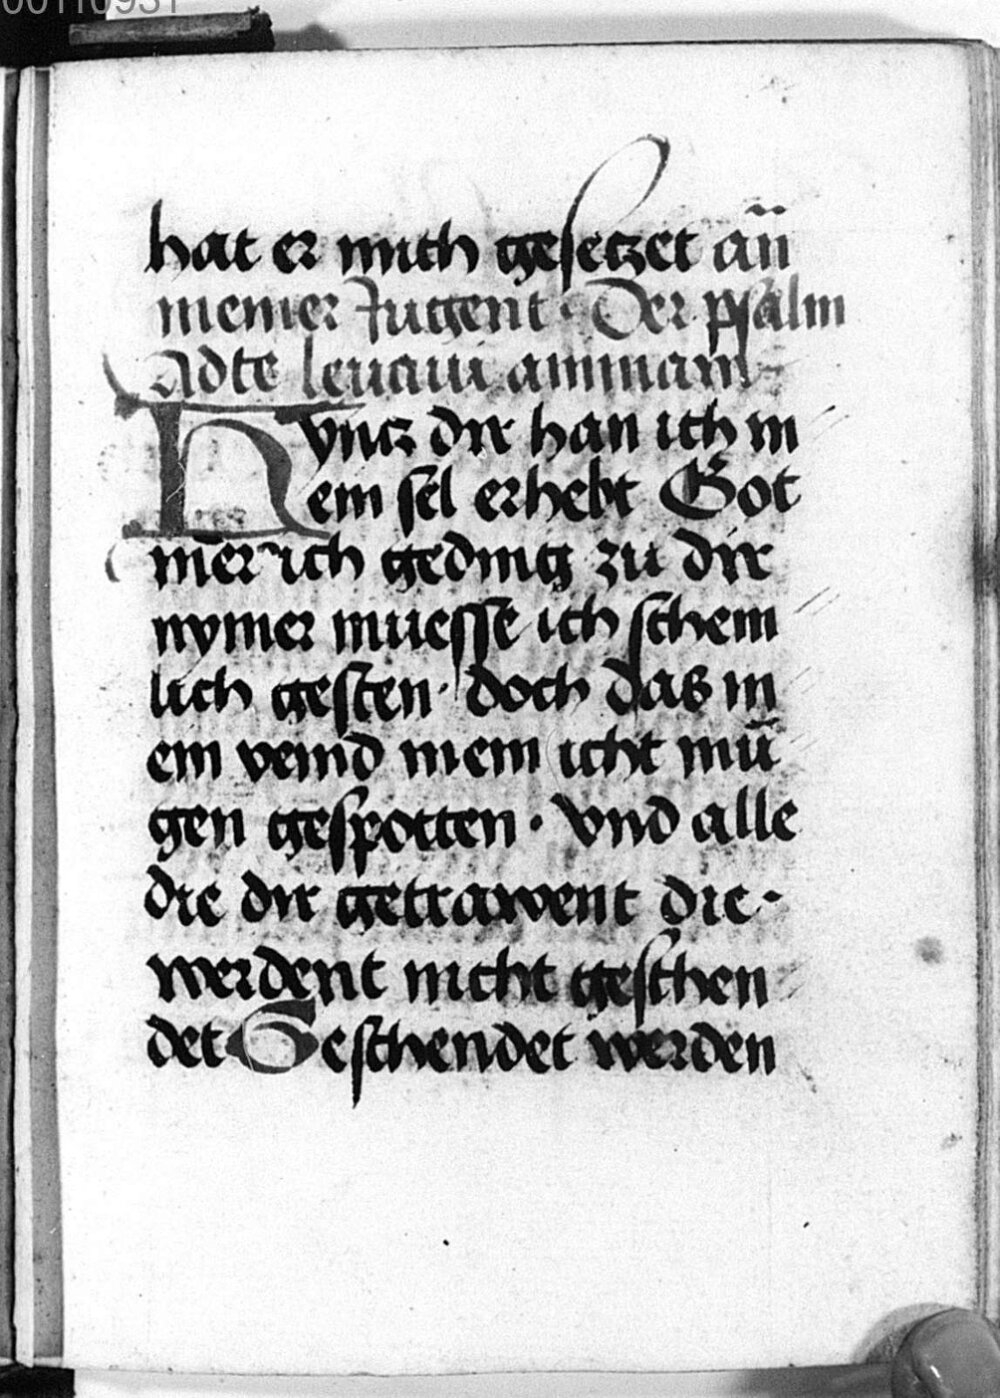 00110931
hat er mich gesetzet an̈
meiner Jugent · Der psalm
Adte leuaui animam
Hyncz dir han ich m
ein sel erhebt Got
mer ich geding zu dir
nymer muesse ich schem
lich gesten · doch das m
ein veind mein icht mü
gen gespotten · vnd alle
die dir getrawent die ·
werdent nicht geschen
det Geschendet werden